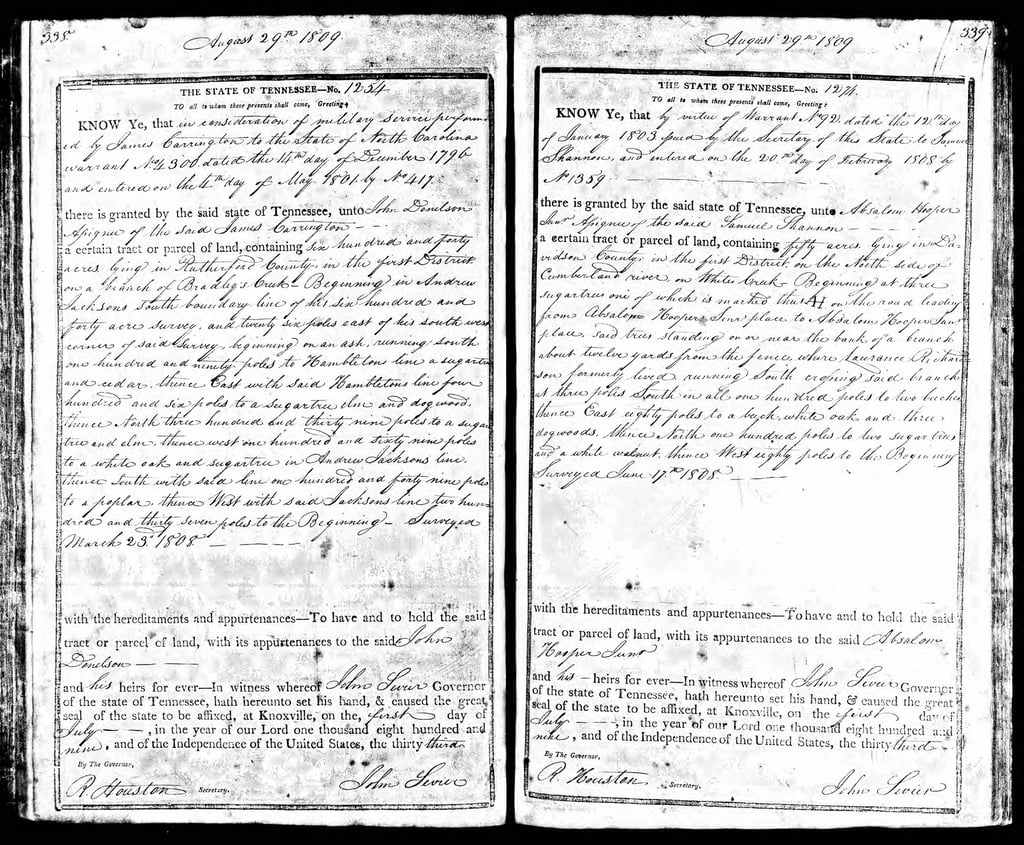 338
August 29th 1809
THE STATE OF TENNESSEE—No. 1254
TO all to whom these presents shall come, Greeting:
KNOW Ye, that in consideration of military service perform
ed by James Carrington to the State of North Carolina
warrant No 4300 dated the 14th day of December 1796
and entered on the 4th day of May 1801 by No 417
there is granted by the said state of Tennessee, unto John Donelson
Assignee of the said James Carrington —
a certain tract or parcel of land, containing six hundred and forty
acres lying in Rutherford County, in the first District
on a branch of Bradley's Creek Beginning in Andrew
Jacksons South boundary line of his six hundred and
forty acre survey, and twenty six poles east of his south west
corner of said Survey, beginning on an ash, running south
one hundred and ninety poles to Hambleton line a sugartree
and cedar, thence East with said Hambletons line four
hundred and six poles to a sugartree elm and dogwood,
thence North three hundred and thirty nine poles to a sugar
tree and elm, thence west one hundred and sixty nine poles
to a white oak and sugartree in Andrew Jacksons line
thence South with said line one hundred and forty nine poles
to a poplar, thence West with said Jacksons line two hun
dred and thirty seven poles to the Beginning — Surveyed
March 23d 1808 — — — —
with the hereditaments and appurtenances—To have and to hold the said
tract or parcel of land, with its appurtenances to the said John
Donelson — — —
and his heirs for ever—In witness whereof John Sevier Governor
of the state of Tennessee, hath hereunto set his hand, & caused the great
seal of the state to be affixed, at Knoxville, on the, first day of
July — —, in the year of our Lord one thousand eight hundred and
nine, and of the Independence of the United States, the thirty third
By The Governor,
R. Houston Secretary. John Sevier
339
August 29th 1809
THE STATE OF TENNESSEE—No. 1274
TO all to whom these presents shall come, Greeting:
KNOW Ye, that by virtue of Warrant No 92 dated the 12th day
of January 1803 issued by the Secretary of this State to Samuel
Shannon, and entered on the 20th day of February 1808 by
No 1359 — — — —
there is granted by the said state of Tennessee, unto Absalom Hooper
Junr Assignee of the said Samuel Shannon — — —
a certain tract or parcel of land, containing fifty acres lying in Da-
vidson County, in the first District on the North side of
Cumberland river, on White Creek Beginning at three
sugartrees one of which is marked thus AH on the road leading
from Absalom Hooper Senrs place to Absalom Hooper Junr
place, said trees standing on or near the bank of a branch
about twelve yards from the fence, where Laurance Richard
son formerly lived running South crossing said branch
at three poles South in all one hundred poles to two beeches
thence East eighty poles to a beech, white oak and three
dogwoods, thence North one hundred poles to two sugar trees
and a white walnut, thence West eighty poles to the Beginning
Surveyed June 17th 1808 — —
with the hereditaments and appurtenances—To have and to hold the said
tract or parcel of land, with its appurtenances to the said Absalom
Hooper Junr
and his — heirs for ever—In witness whereof John Sevier Governor
of the state of Tennessee, hath hereunto set his hand, & caused the great
seal of the state to be affixed, at Knoxville, on the first day of
July — —, in the year of our Lord one thousand eight hundred and
nine, and of the Independence of the United States, the thirty third
By The Governor,
R. Houston Secretary. John Sevier